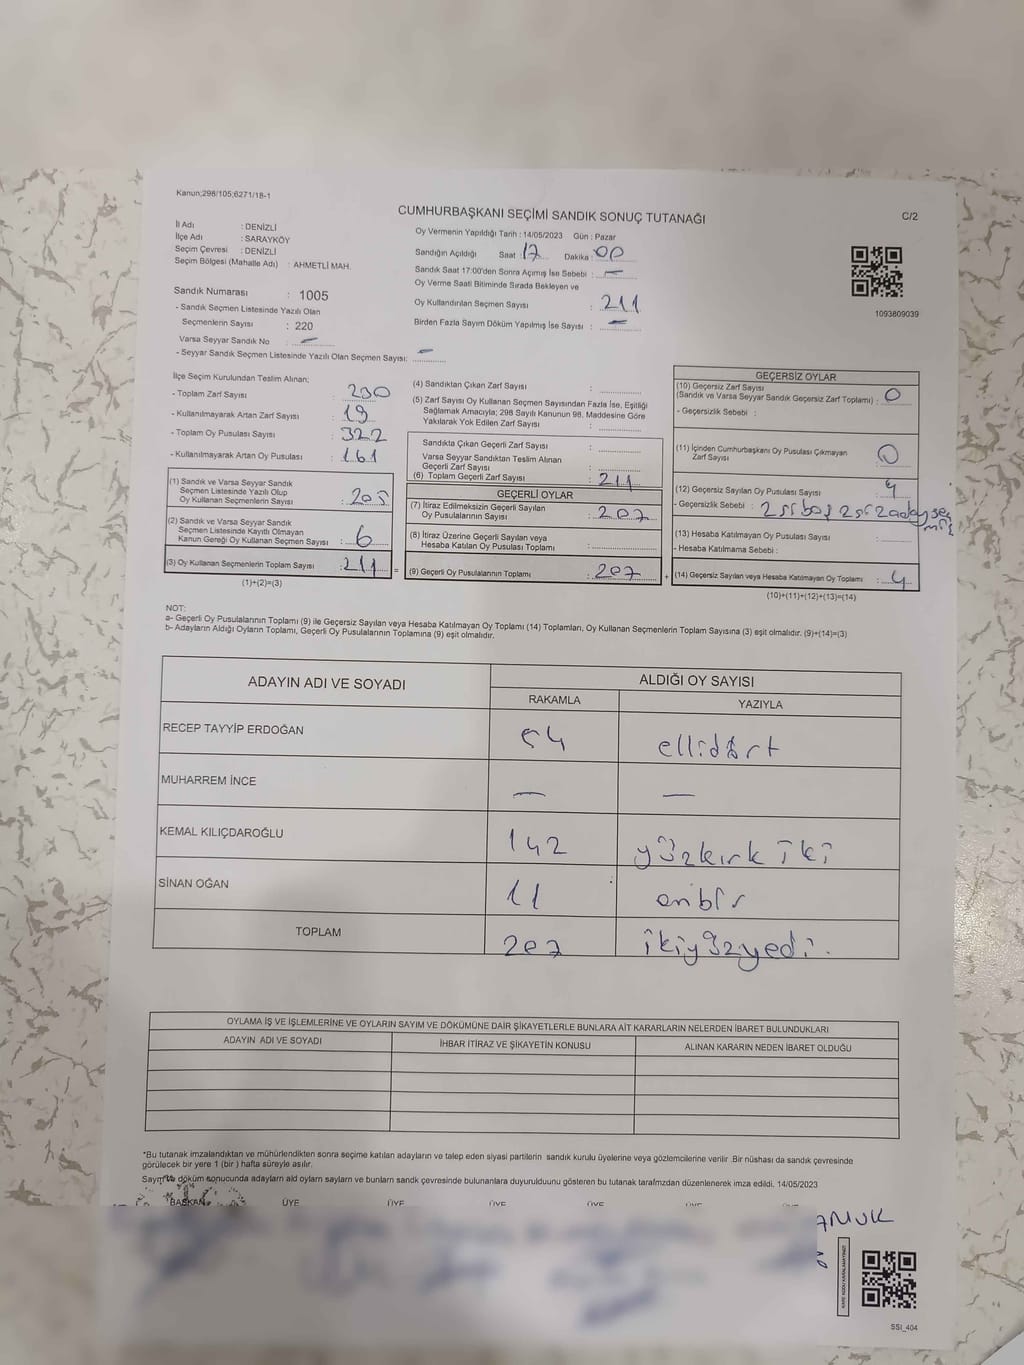 Kanun;298/105;6271/18-1
CUMHURBAŞKANI SEÇİMİ SANDIK SONUÇ TUTANAĞI
C/2
İl Adı : DENİZLİ
İlçe Adı : SARAYKÖY
Seçim Çevresi : DENİZLİ
Seçim Bölgesi (Mahalle Adı) : AHMETLİ MAH.
Sandık Numarası : 1005
- Sandık Seçmen Listesinde Yazılı Olan
Seçmenlerin Sayısı : 220
Varsa Seyyar Sandık No : —
- Seyyar Sandık Seçmen Listesinde Yazılı Olan Seçmen Sayısı: —
Oy Vermenin Yapıldığı Tarih : 14/05/2023 Gün : Pazar
Sandığın Açıldığı Saat : 17 Dakika : 00
Sandık Saat 17:00'den Sonra Açımış İse Sebebi : —
Oy Verme Saati Bitiminde Sırada Bekleyen ve
Oy Kullandırılan Seçmen Sayısı : 211
Birden Fazla Sayım Döküm Yapılmış İse Sayısı : —
1093809039
İlçe Seçim Kurulundan Teslim Alınan;
- Toplam Zarf Sayısı : 230
- Kullanılmayarak Artan Zarf Sayısı : 19
- Toplam Oy Pusulası Sayısı : 322
- Kullanılmayarak Artan Oy Pusulası : 161
(1) Sandık ve Varsa Seyyar Sandık
Seçmen Listesinde Yazılı Olup
Oy Kullanan Seçmenlerin Sayısı : 205
(2) Sandık ve Varsa Seyyar Sandık
Seçmen Listesinde Kayıtlı Olmayan
Kanun Gereği Oy Kullanan Seçmen Sayısı : 6
(3) Oy Kullanan Seçmenlerin Toplam Sayısı : 211
(1)+(2)=(3)
(4) Sandıktan Çıkan Zarf Sayısı :
(5) Zarf Sayısı Oy Kullanan Seçmen Sayısından Fazla İse, Eşitliği
Sağlamak Amacıyla; 298 Sayılı Kanunun 98. Maddesine Göre
Yakılarak Yok Edilen Zarf Sayısı :
Sandıkta Çıkan Geçerli Zarf Sayısı :
Varsa Seyyar Sandıktan Teslim Alınan
Geçerli Zarf Sayısı :
(6) Toplam Geçerli Zarf Sayısı : 211
GEÇERLİ OYLAR
(7) İtiraz Edilmeksizin Geçerli Sayılan
Oy Pusulalarının Sayısı : 207
(8) İtiraz Üzerine Geçerli Sayılan veya
Hesaba Katılan Oy Pusulası Toplamı :
= (9) Geçerli Oy Pusulalarının Toplamı : 207
GEÇERSİZ OYLAR
(10) Geçersiz Zarf Sayısı
(Sandık ve Varsa Seyyar Sandık Geçersiz Zarf Toplamı) : 0
- Geçersizlik Sebebi :
(11) İçinden Cumhurbaşkanı Oy Pusulası Çıkmayan
Zarf Sayısı : 0
(12) Geçersiz Sayılan Oy Pusulası Sayısı : 4
- Geçersizlik Sebebi :
(13) Hesaba Katılmayan Oy Pusulası Sayısı :
- Hesaba Katılmama Sebebi :
+ (14) Geçersiz Sayılan veya Hesaba Katılmayan Oy Toplamı : 4
(10)+(11)+(12)+(13)=(14)
NOT:
a- Geçerli Oy Pusulalarının Toplamı (9) ile Geçersiz Sayılan veya Hesaba Katılmayan Oy Toplamı (14) Toplamları, Oy Kullanan Seçmenlerin Toplam Sayısına (3) eşit olmalıdır. (9)+(14)=(3)
b- Adayların Aldığı Oyların Toplamı, Geçerli Oy Pusulalarının Toplamına (9) eşit olmalıdır.
ADAYIN ADI VE SOYADI
ALDIĞI OY SAYISI
RAKAMLA YAZIYLA
RECEP TAYYİP ERDOĞAN 54 ellidört
MUHARREM İNCE — —
KEMAL KILIÇDAROĞLU 142 yüzkırk iki
SİNAN OĞAN 11 onbir
TOPLAM 207 ikiyüzyedi.
OYLAMA İŞ VE İŞLEMLERİNE VE OYLARIN SAYIM VE DÖKÜMÜNE DAİR ŞİKAYETLERLE BUNLARA AİT KARARLARIN NELERDEN İBARET BULUNDUKLARI
ADAYIN ADI VE SOYADI İHBAR İTİRAZ VE ŞİKAYETİN KONUSU ALINAN KARARIN NEDEN İBARET OLDUĞU
*Bu tutanak imzalandıktan ve mühürlendikten sonra seçime katılan adayların ve talep eden siyasi partilerin sandık kurulu üyelerine veya gözlemcilerine verilir .Bir nüshası da sandık çevresinde
görülecek bir yere 1 (bir ) hafta süreyle asılır.
döküm sonucunda adayların ald oyların sayların ve bunların sandk çevresinde bulunanlara duyurulduunu gösteren bu tutanak tarafımzdan düzenlenerek imza edildi. 14/05/2023
BAŞKAN ÜYE ÜYE ÜYE ÜYE ÜYE ÜYE
AMUK
SSI_404